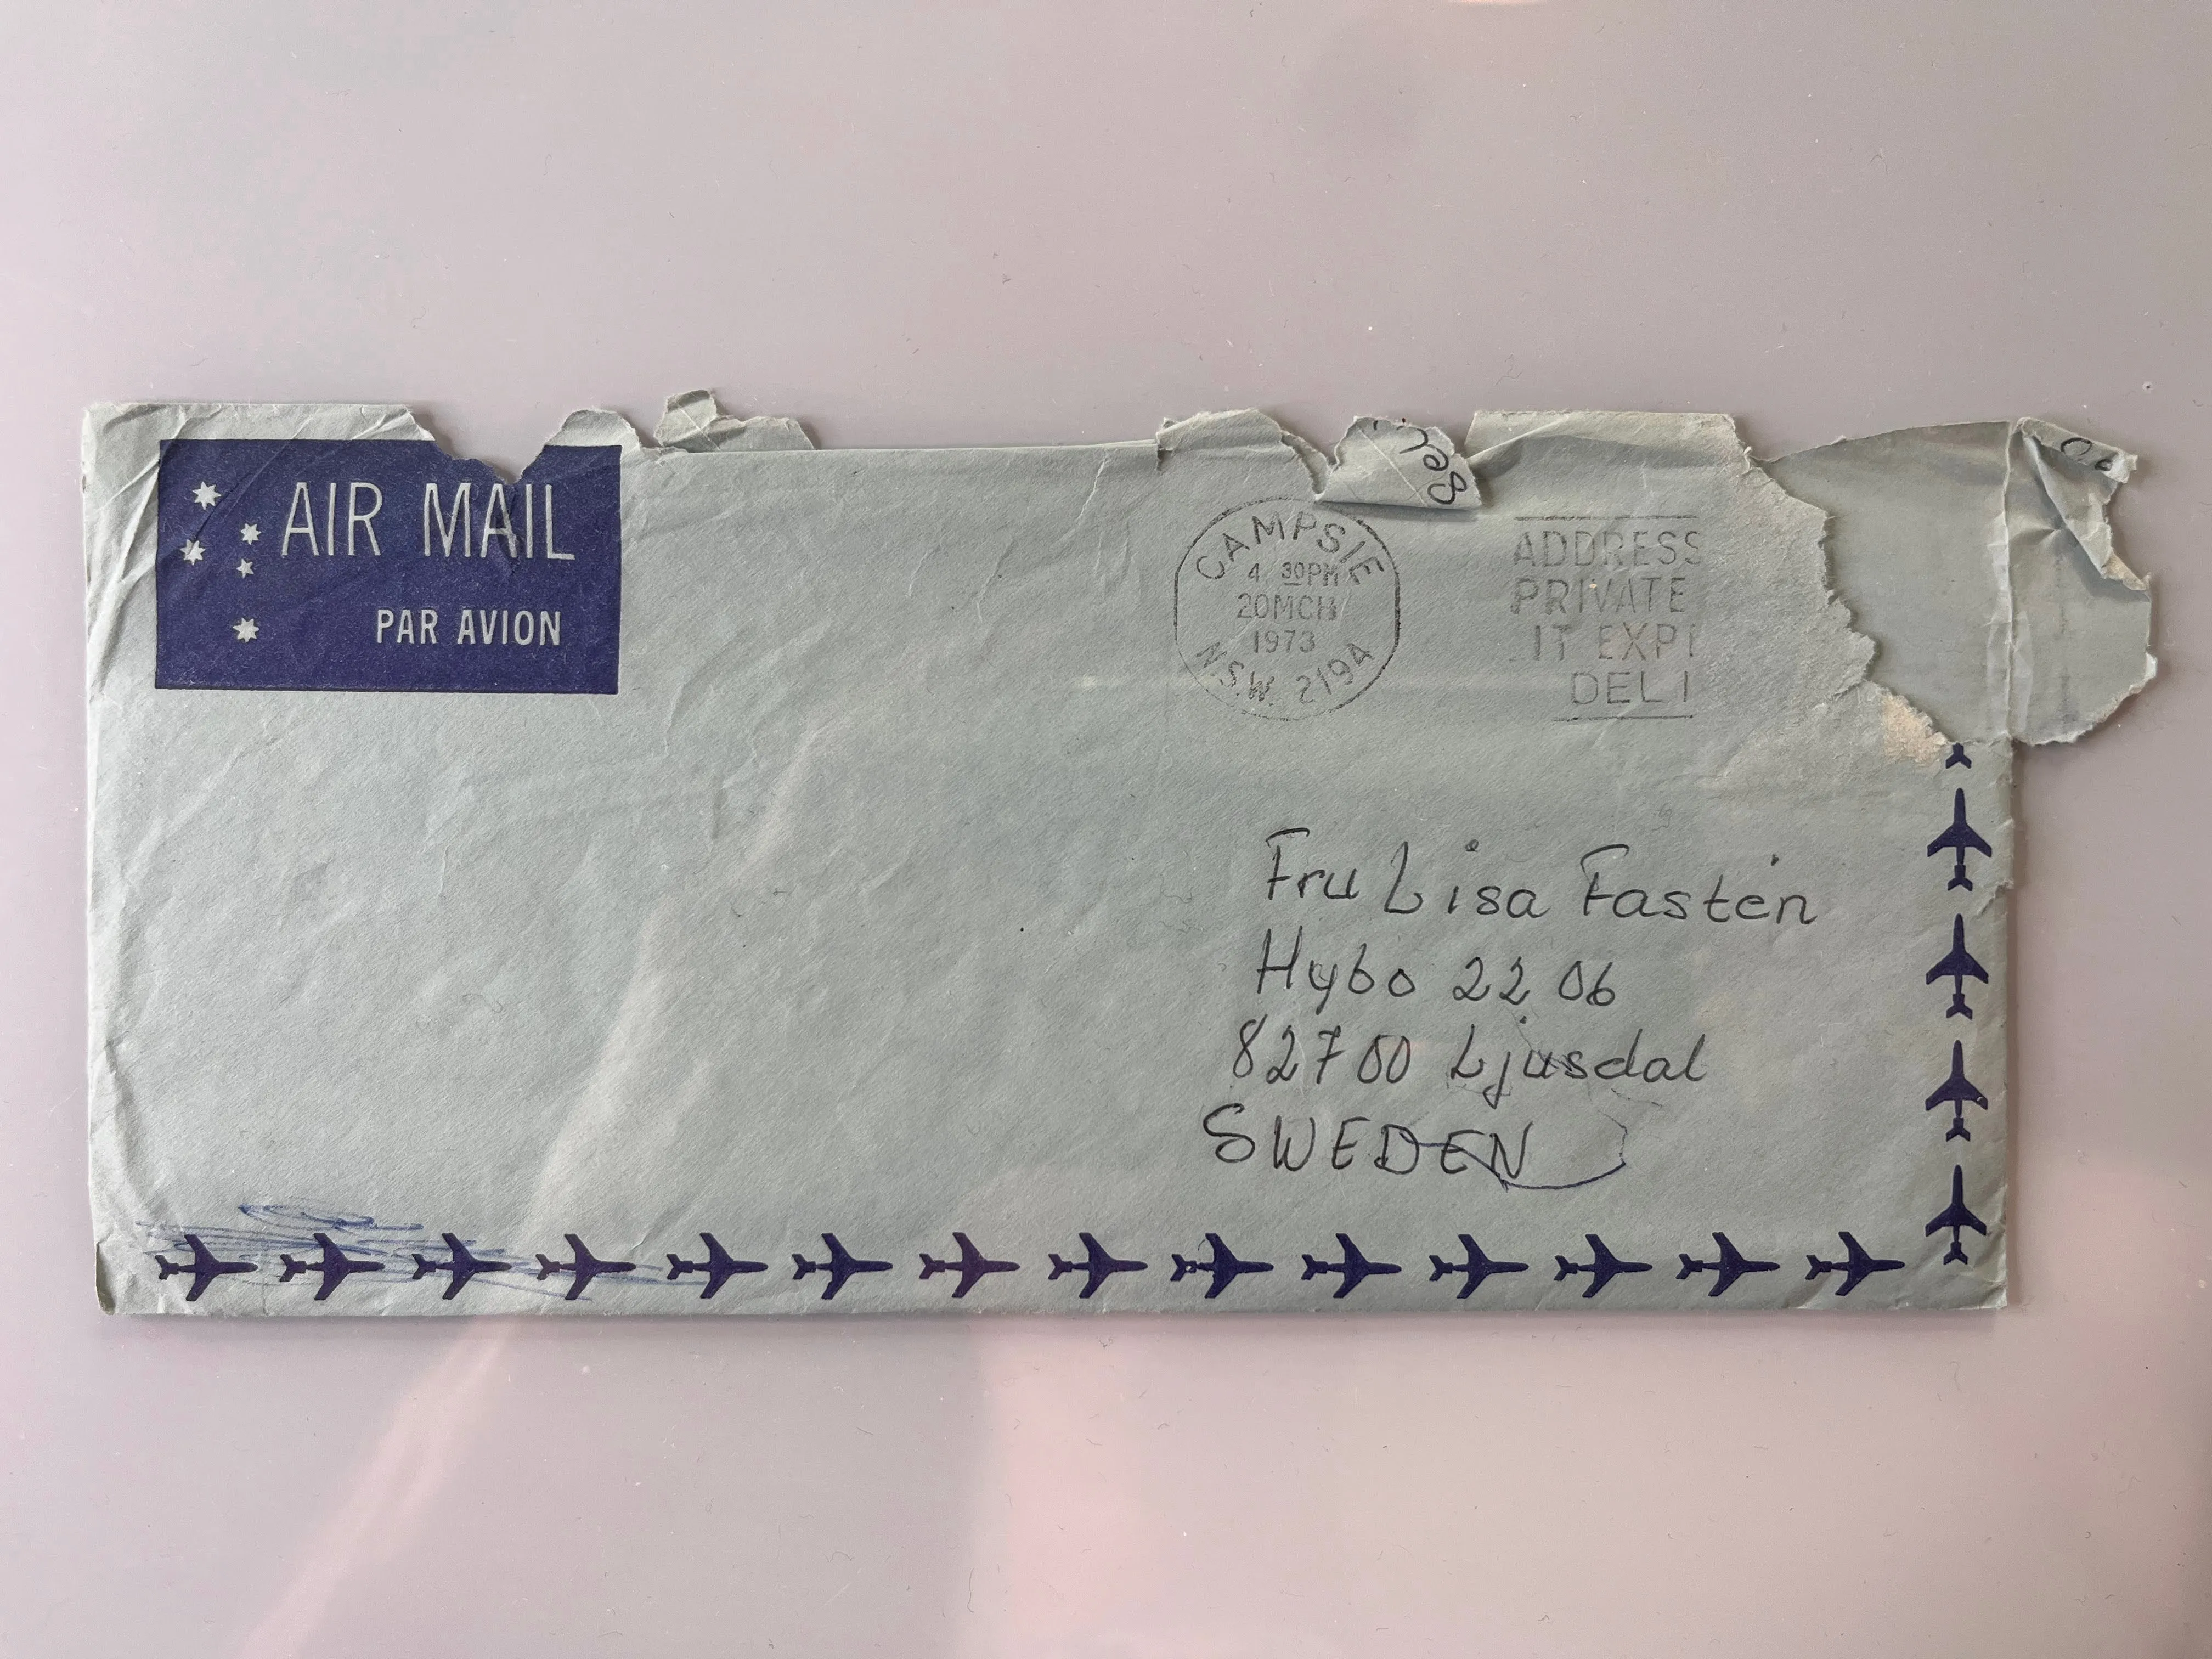 AIR MAIL
PAR AVION
CAMPSIE
4 30PM
20MCH
1973
N.S.W. 2194
ADDRESS
PRIVATE
IT EXP
DELI
Fru Lisa Fastén
Hybo 22 06
82700 Ljusdal
SWEDEN